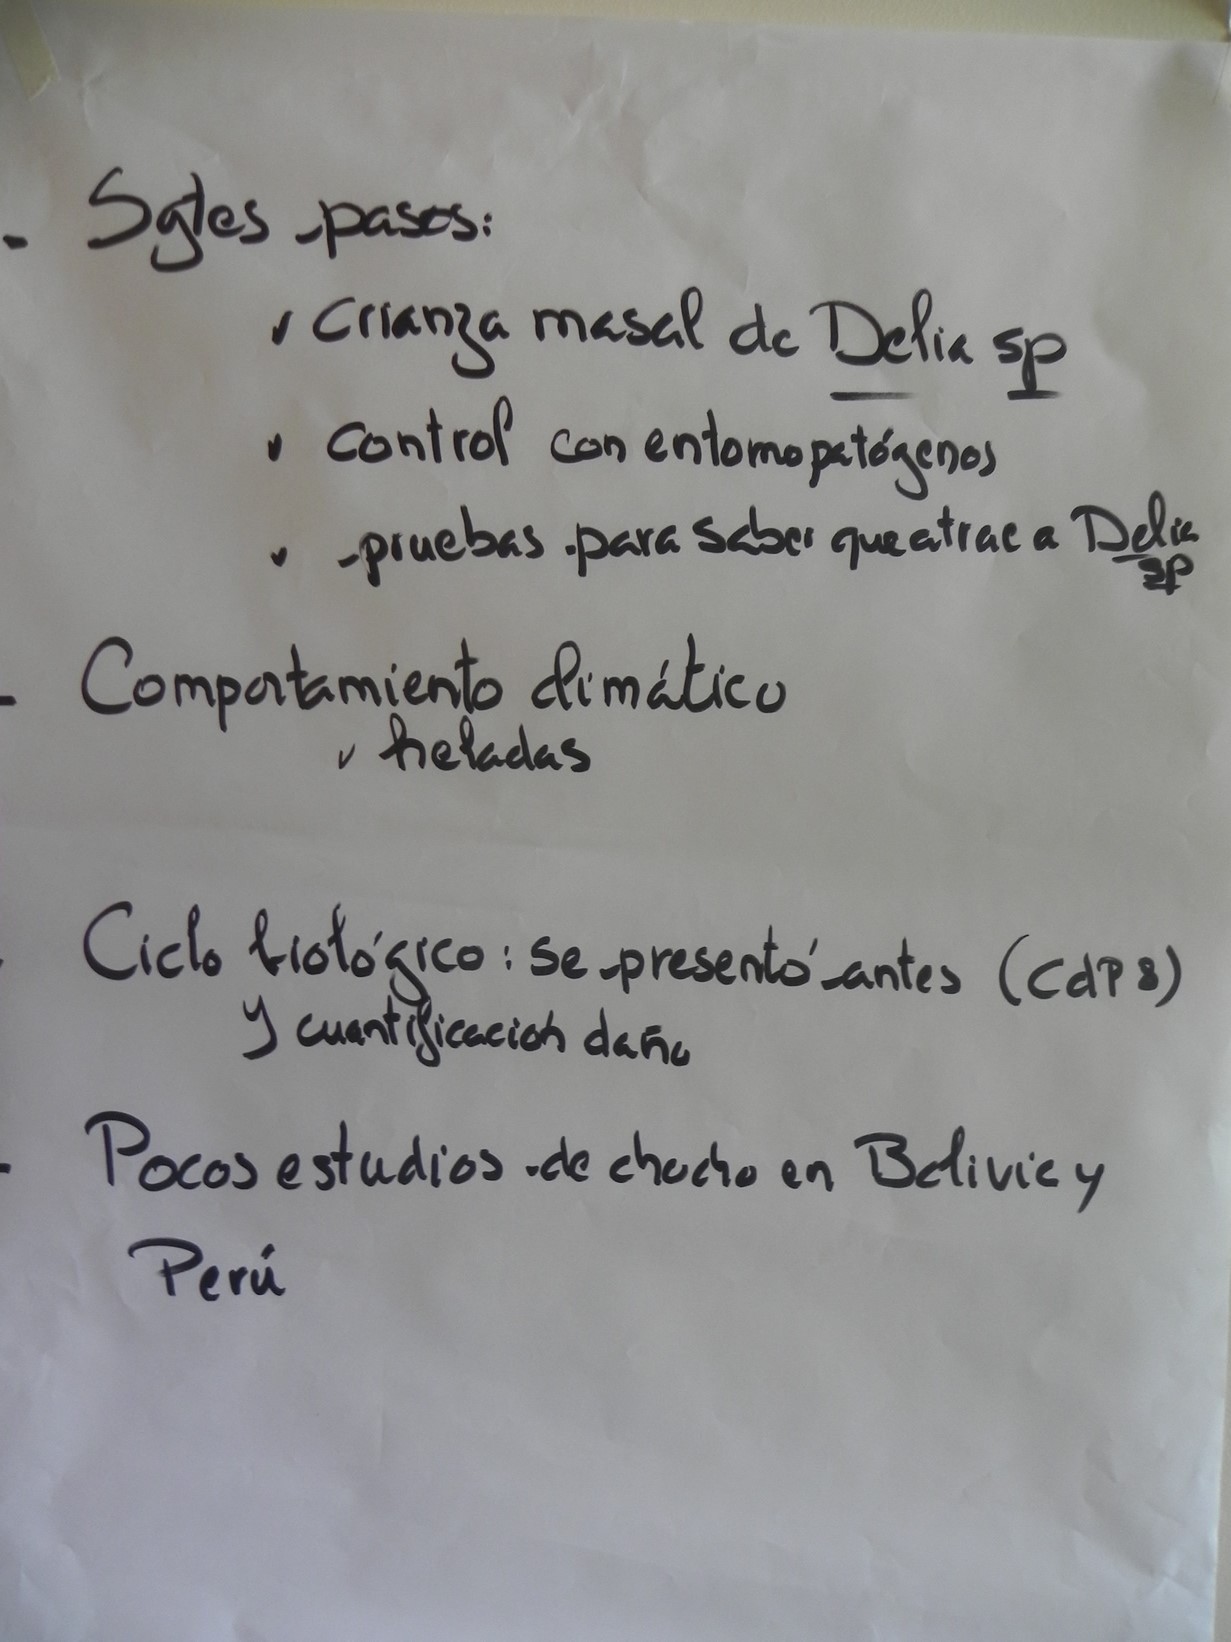 - Sgtes pasos:
✓ crianza masal de Delia sp
✓ control con entomopatógenos
✓ pruebas para saber que atrae a Delia
sp
- Comportamiento climático
✓ heladas
- Ciclo biológico: se presentó antes (CdP8)
y cuantificación daño
- Pocos estudios de chocho en Bolivia y
Perú